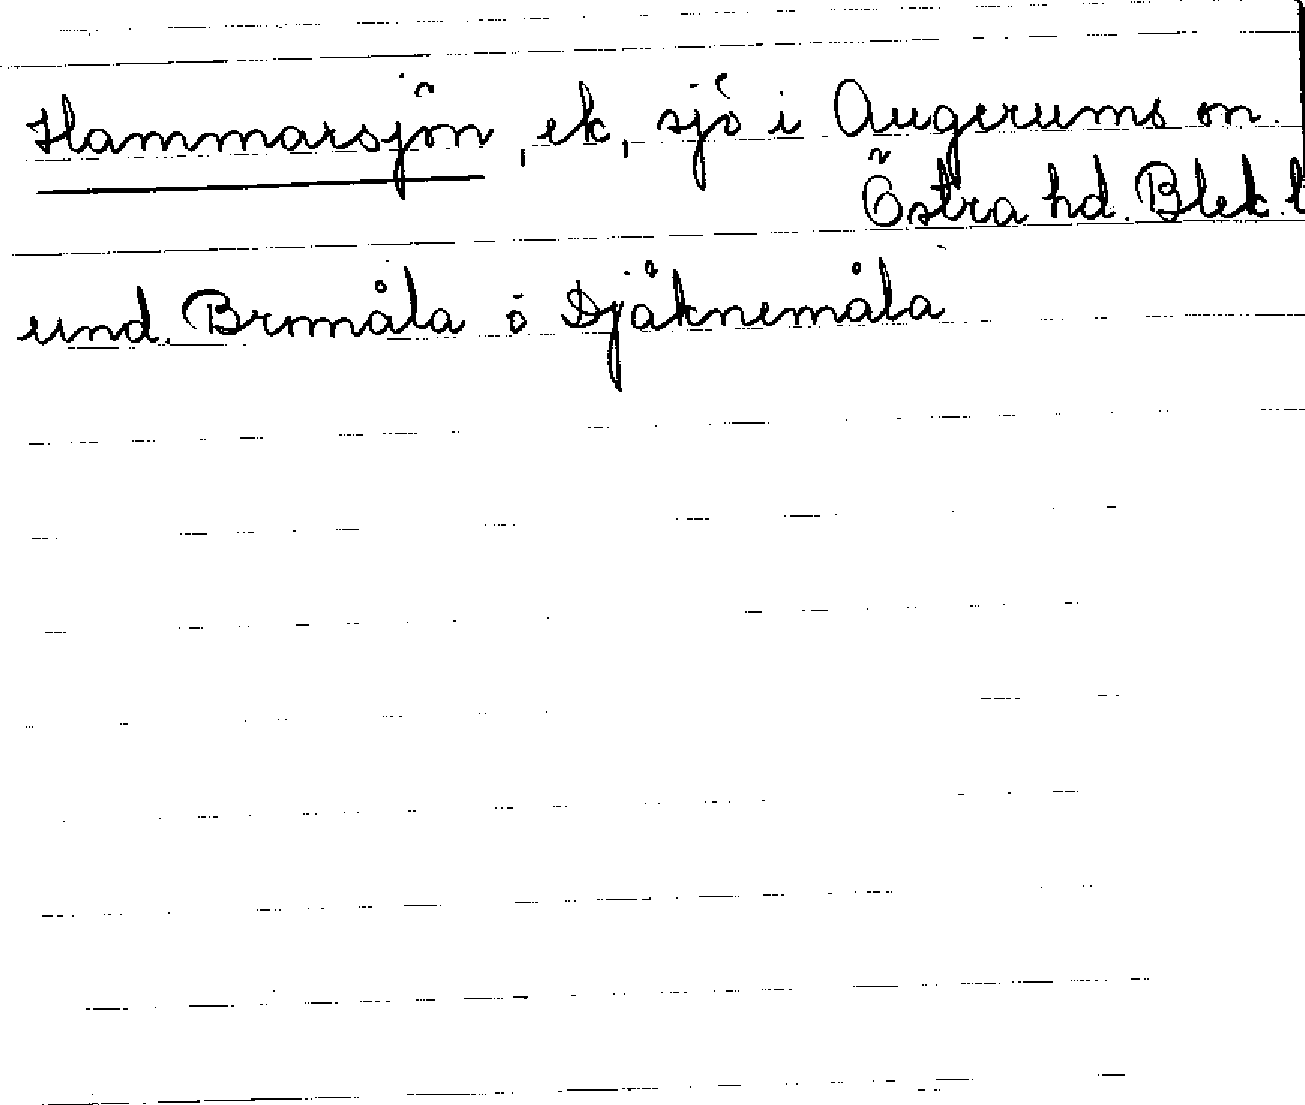 Hammarsjön, ek, sjö i Augerums sn.
Östra hd. Blek. l
und. Brmåla o Djäknemåla